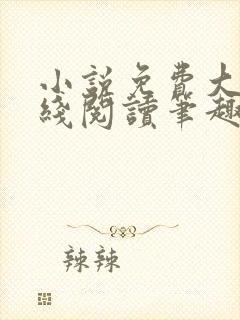 小說免費大
綫閱讀筆趣
辣辣